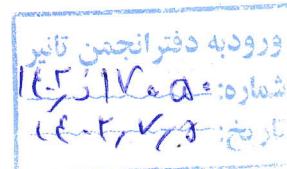 ورود به دفتر انجمن تانیر
شماره: ۱۴۰۲ر۱۷۰۵۰
تاریخ: ۱۴۰۲,۷,۵